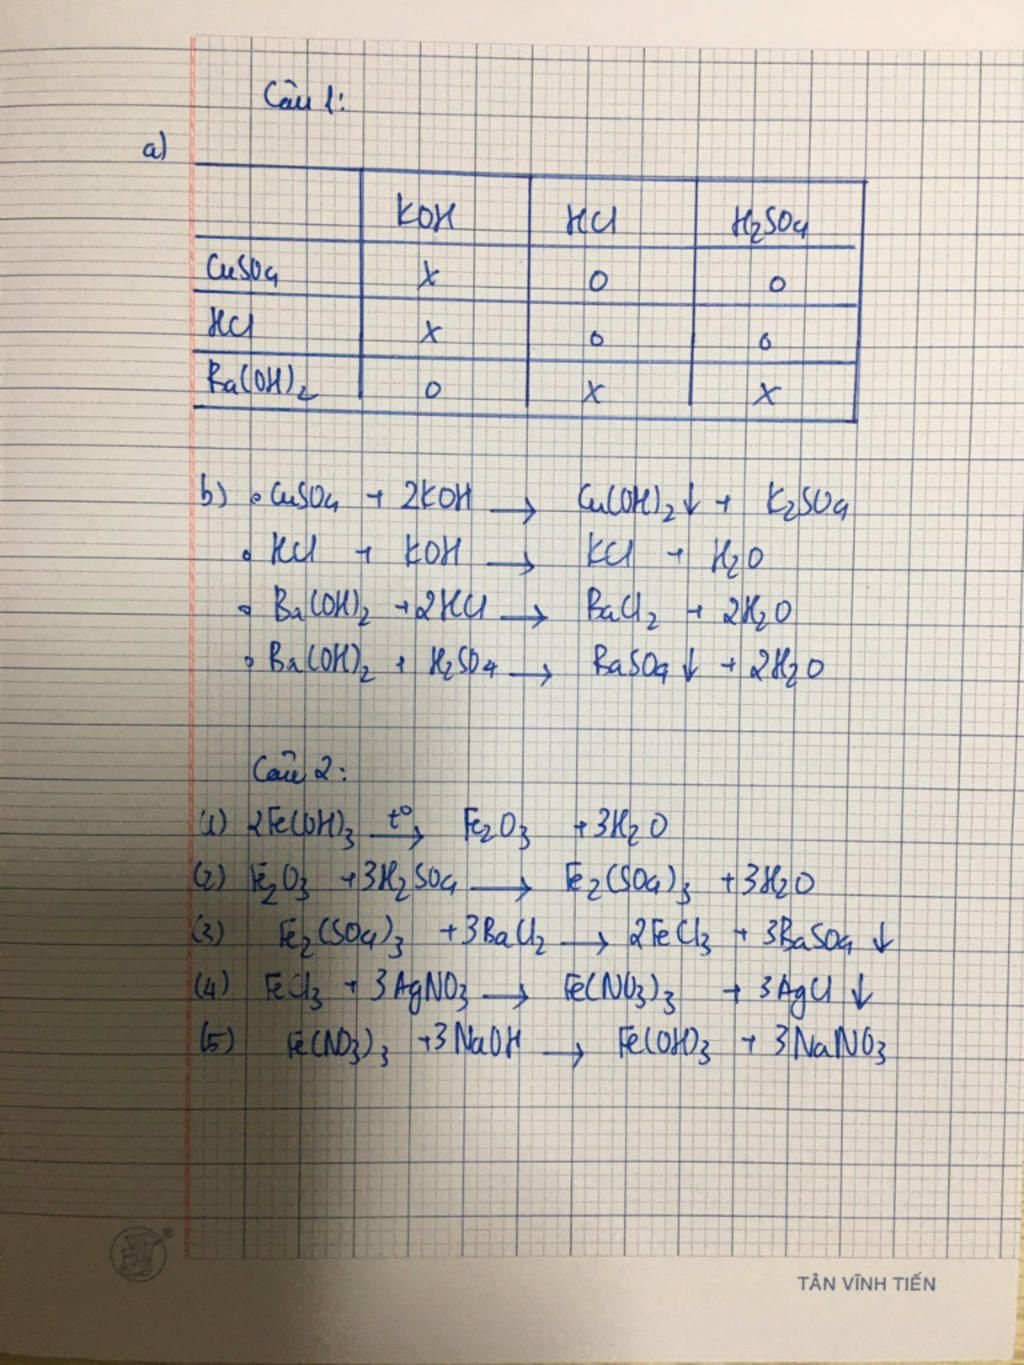 Câu 1:
a)
KOH HCl H₂SO₄
CuSO₄ X O O
HCl X O O
Ba(OH)₂ O X X
b) • CuSO₄ + 2KOH → Cu(OH)₂↓ + K₂SO₄
• HCl + KOH → KCl + H₂O
• Ba(OH)₂ + 2HCl → BaCl₂ + 2H₂O
• Ba(OH)₂ + H₂SO₄ → BaSO₄↓ + 2H₂O
Câu 2:
(1) 2Fe(OH)₃ t°→ Fe₂O₃ + 3H₂O
(2) Fe₂O₃ + 3H₂SO₄ → Fe₂(SO₄)₃ + 3H₂O
(3) Fe₂(SO₄)₃ + 3BaCl₂ → 2FeCl₃ + 3BaSO₄↓
(4) FeCl₃ + 3AgNO₃ → Fe(NO₃)₃ + 3AgCl↓
(5) Fe(NO₃)₃ + 3NaOH → Fe(OH)₃ + 3NaNO₃
TÂN VĨNH TIẾN